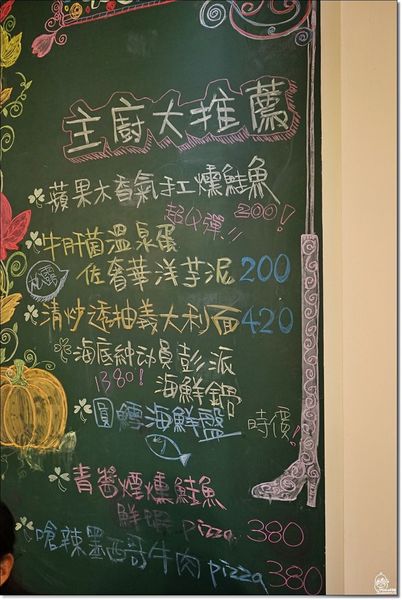 主廚大推薦
蘋果木香氣手工燻鮭魚
超Q彈!! 200!
牛肝菌溫泉蛋
佐奢華洋芋泥 200
清炒透抽義大利面 420
海底總动員彭派
1380! 海鮮鍋
圓鱈海鮮盤 時價!
青醬煙燻鮭魚
鮮蝦 pizza. 380
嗆辣墨西哥牛肉 pizza 380